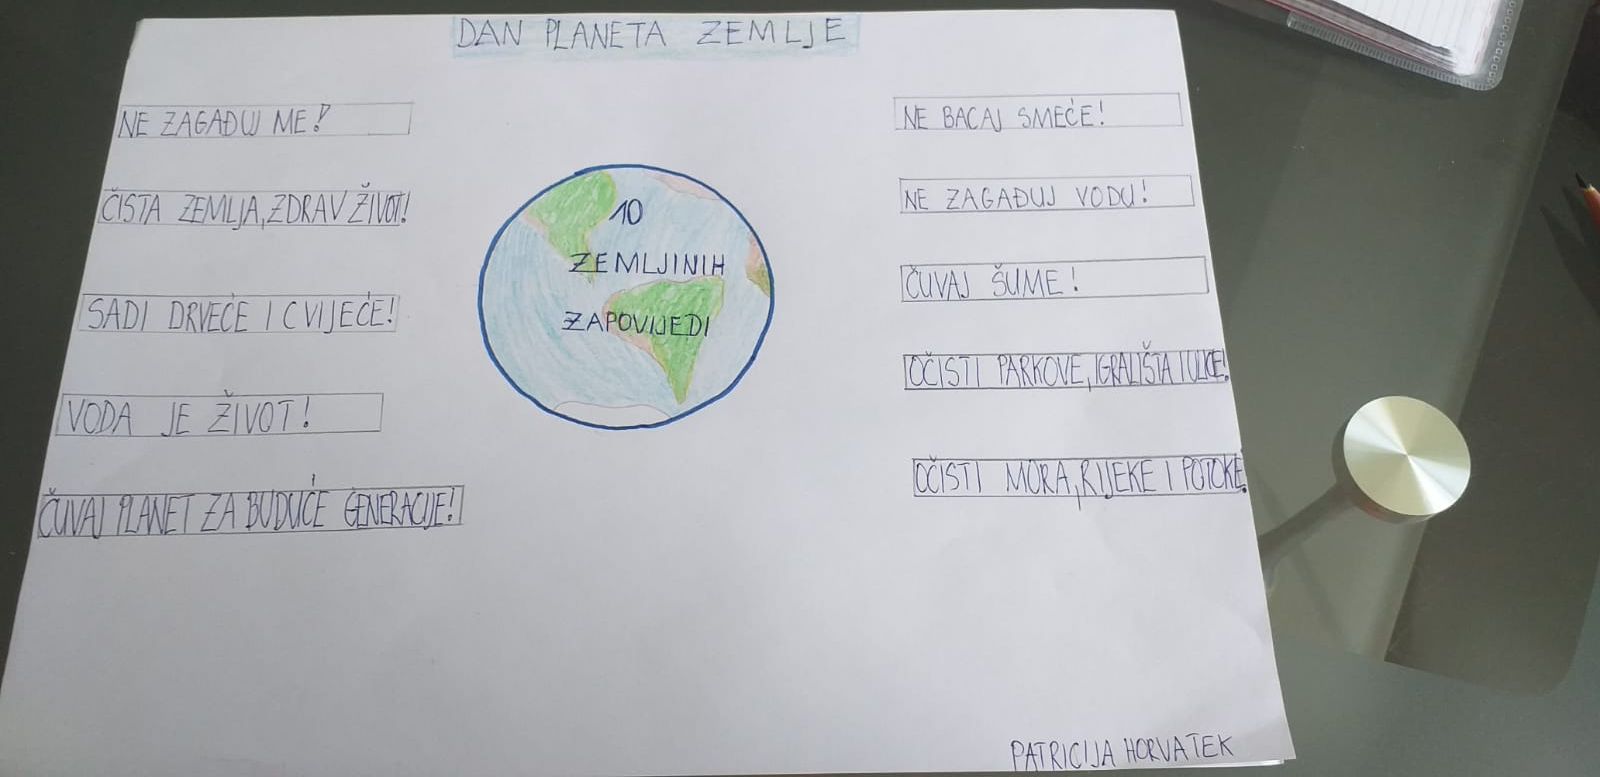 DAN PLANETA ZEMLJE
NE ZAGAĐUJ ME!
ČISTA ZEMLJA, ZDRAV ŽIVOT!
SADI DRVEĆE I CVIJEĆE!
VODA JE ŽIVOT!
ČUVAJ PLANET ZA BUDUĆE GENERACIJE!
10
ZEMLJINIH
ZAPOVIJEDI
NE BACAJ SMEĆE!
NE ZAGAĐUJ VODU!
ČUVAJ ŠUME!
OČISTI PARKOVE, IGRALIŠTA I ULICE!
OČISTI MORA, RIJEKE I POTOKE!
PATRICIJA HORVATEK